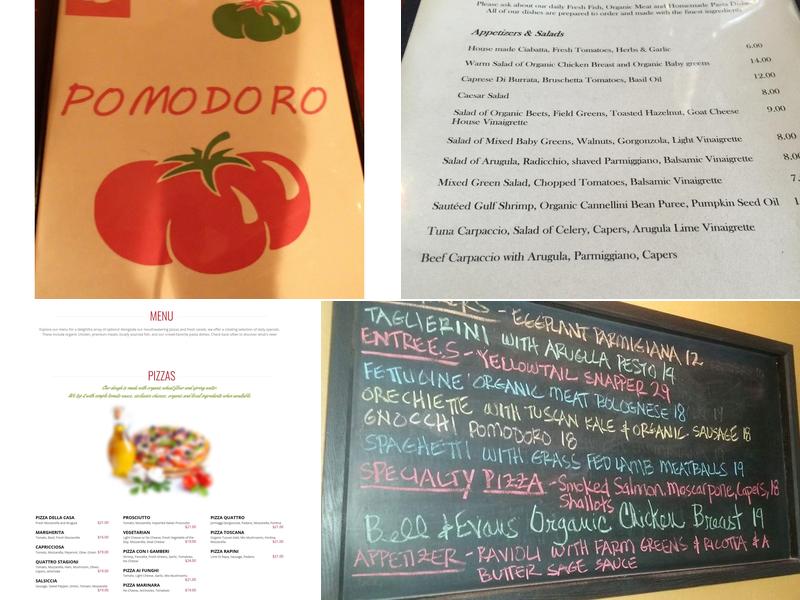 POMODORO
Please ask about our daily Fresh Fish, Organic Meat and Homemade Pasta
All of our dishes are prepared to order and made with the finest
Appetizers & Salads
House made Ciabatta, Fresh Tomatoes, Herbs & Garlic 6.00
Warm Salad of Organic Chicken Breast and Organic Baby greens 14.00
Caprese Di Burrata, Bruschetta Tomatoes, Basil Oil 12.00
Caesar Salad 8.00
Salad of Organic Beets, Field Greens, Toasted Hazelnut, Goat Cheese 9.00
House Vinaigrette
Salad of Mixed Baby Greens, Walnuts, Gorgonzola, Light Vinaigrette 8.00
Salad of Arugula, Radicchio, shaved Parmiggiano, Balsamic Vinaigrette 8.00
Mixed Green Salad, Chopped Tomatoes, Balsamic Vinaigrette 7.
Sautéed Gulf Shrimp, Organic Cannellini Bean Puree, Pumpkin Seed Oil 1
Tuna Carpaccio, Salad of Celery, Capers, Arugula Lime Vinaigrette
Beef Carpaccio with Arugula, Parmiggiano, Capers
MENU
PIZZAS
PIZZA DELLA CASA
$21.00
MARGHERITA
$19.00
CAPRICCIOSA
$19.00
QUATTRO STAGIONI
$19.00
SALSICCIA
$19.00
PROSCIUTTO
$21.00
VEGETARIAN
$19.00
PIZZA CON I GAMBERI
$24.00
PIZZA AI FUNGHI
$21.00
PIZZA MARINARA
$19.00
PIZZA QUATTRO
$21.00
PIZZA TOSCANA
$21.00
PIZZA RAPINI
$21.00
- EGGPLANT PARMIGIANA 12
TAGLIERINI WITH ARUGULA PESTO 14
ENTREES - YELLOWTAIL SNAPPER 29
FETTUCINE ORGANIC MEAT BOLOGNESE 18
ORECHIETTE WITH TUSCAN KALE & ORGANIC SAUSAGE 18
GNOCCHI POMODORO 18
SPAGHETTI WITH GRASS FED LAMB MEATBALLS 19
SPECIALTY PIZZA - Smoked Salmon, Moscarpone, Capers, 18
Shallots
Bell & Evans Organic Chicken Breast 19
APPETIZER - RAVIOLI WITH FARM GREENS & RICOTTA & A
BUTTER SAGE SAUCE